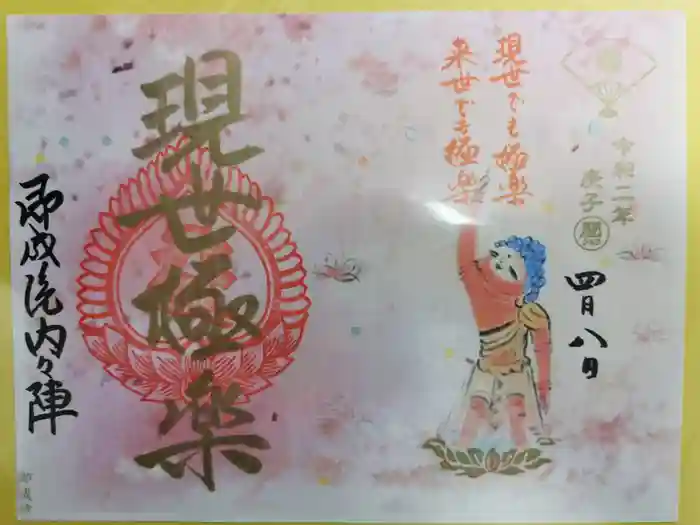 現世でも極楽
来世でも極楽
令和二年
庚子
四月八日
現世極楽
即成院内々陣